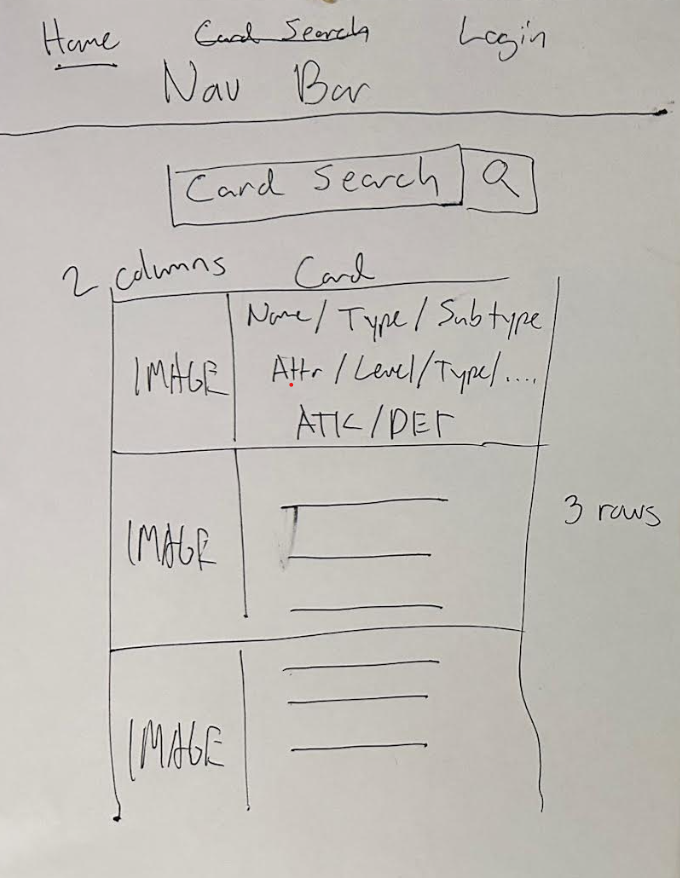 Home Card Search Login
Nav Bar
Card Search
2 columns Card
IMAGE
Name / Type / Subtype
Attr / Level / Type / ....
ATK / DEF
IMAGE
3 rows
IMAGE